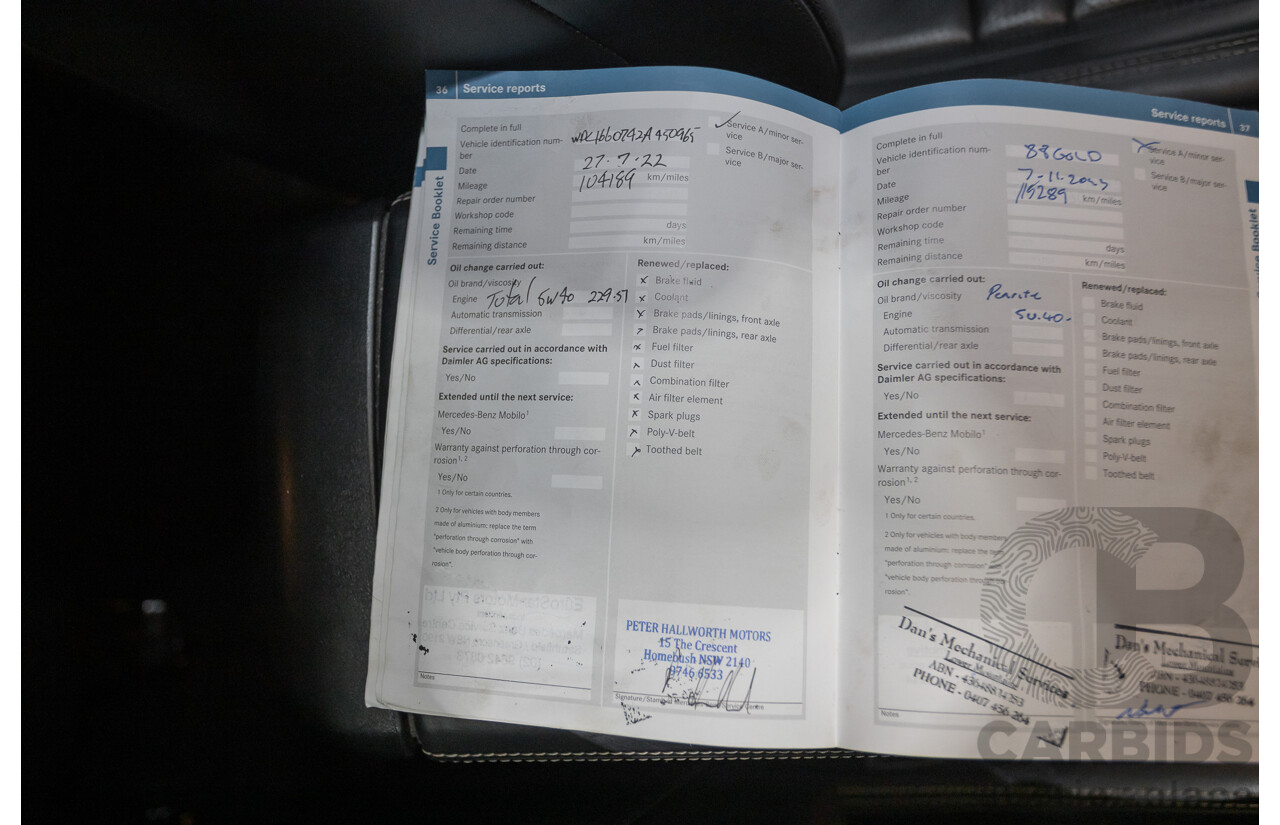 36 Service reports
Complete in full
Vehicle identification num-
ber
WDC1660742A450965
Date 27.7.22
Mileage 104189 km/miles
Repair order number
Workshop code
Remaining time days
Remaining distance km/miles
✓ Service A/minor ser-
vice
Service B/major ser-
vice
Service Booklet
Oil change carried out:
Oil brand/viscosity
Engine Total 5W40 229.51
Automatic transmission
Differential/rear axle
Service carried out in accordance with
Daimler AG specifications:
Yes/No
Extended until the next service:
Mercedes-Benz Mobilo¹
Yes/No
Warranty against perforation through cor-
rosion¹, ²
Yes/No
1 Only for certain countries.
2 Only for vehicles with body members
made of aluminium: replace the term
"perforation through corrosion" with
"vehicle body perforation through cor-
rosion".
Notes
Renewed/replaced:
Brake fluid
Coolant
Brake pads/linings, front axle
Brake pads/linings, rear axle
Fuel filter
Dust filter
Combination filter
Air filter element
Spark plugs
Poly-V-belt
Toothed belt
PETER HALLWORTH MOTORS
15 The Crescent
Homebush NSW 2140
9746 6533
Service reports 37
Complete in full
Vehicle identification num-
ber
88GOLD
Date 7-11.2023
Mileage 115289 km/miles
Repair order number
Workshop code
Remaining time days
Remaining distance km/miles
Service A/minor ser-
vice
Service B/major ser-
vice
Oil change carried out:
Oil brand/viscosity Penrite
Engine 5W.40.
Automatic transmission
Differential/rear axle
Service carried out in accordance with
Daimler AG specifications:
Yes/No
Extended until the next service:
Mercedes-Benz Mobilo¹
Yes/No
Warranty against perforation through cor-
rosion¹, ²
Yes/No
1 Only for certain countries.
2 Only for vehicles with body members
made of aluminium: replace the term
"perforation through corrosion"
"vehicle body perforation through
rosion".
Notes
Renewed/replaced:
Brake fluid
Coolant
Brake pads/linings, front axle
Brake pads/linings, rear axle
Fuel filter
Dust filter
Combination filter
Air filter element
Spark plugs
Poly-V-belt
Toothed belt
Dan's Mechanical Services
PHONE - 0407 456 264
Dan's Mechanical Serv
PHONE - 0407 456 264
CARBIDS